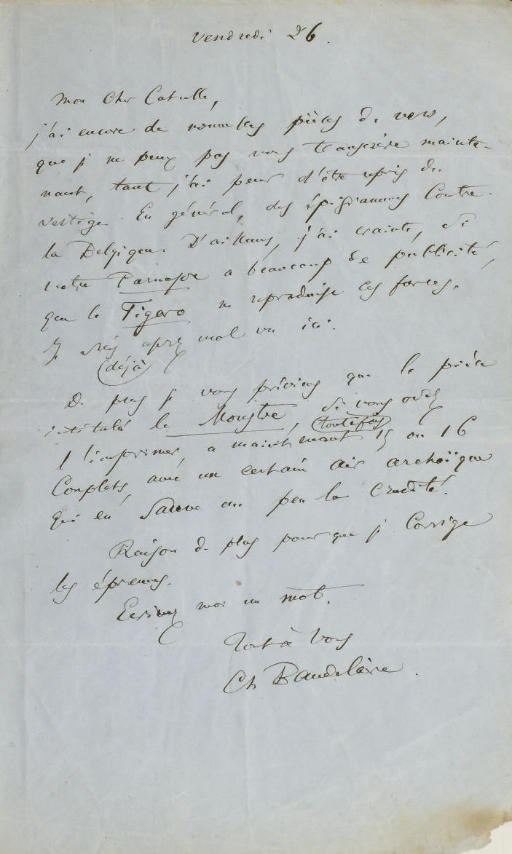 Vendredi 26.
Mon cher Catulle,
j'ai encore de nouvelles pièces de vers,
que je ne peux pas vous transcrire mainte-
nant, tant j'ai peur d'être repris de
vertige. En général, des épigrammes contre
la Belgique. D'ailleurs, j'ai crainte, si
votre Parnasse a beaucoup de publicité,
que le Figaro ne reproduise ces farces.
Je suis assez mal vu ici.
(déjà)
De plus je vous préviens que la pièce
intitulée le Monstre, si vous osez
(toutefois)
l'imprimer, a maintenant 15 ou 16
Couplets, avec un certain air archaïque
qui en sauve un peu la crudité.
Raison de plus pour que je corrige
les épreuves.
Ecrivez moi un mot.
Tout à vous
Ch. Baudelaire.